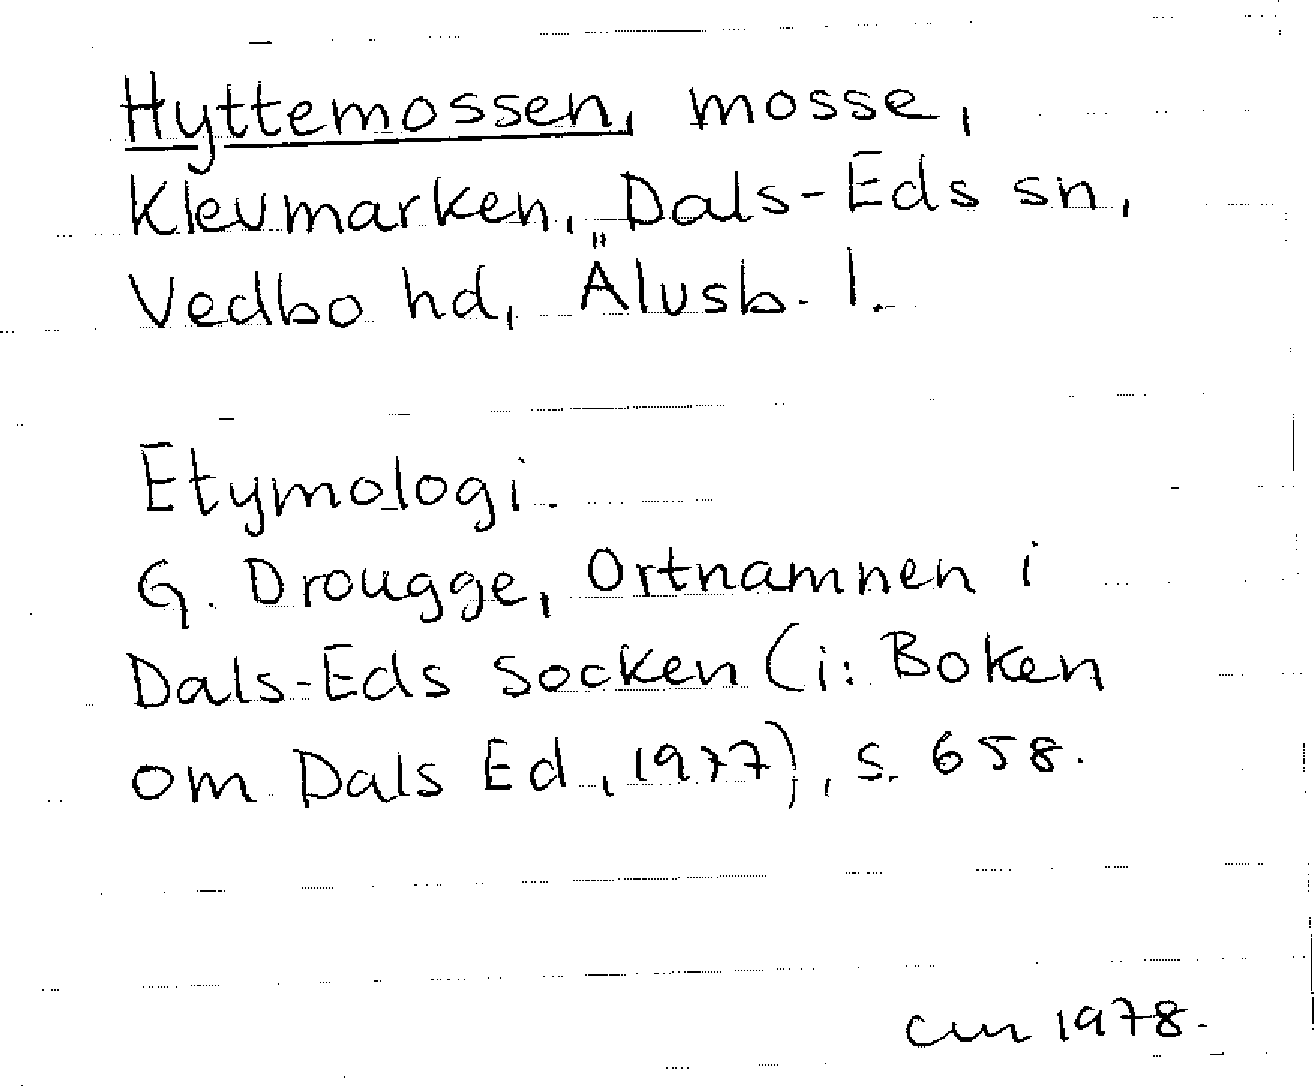 Hyttemossen, mosse,
Klevmarken, Dals-Eds sn,
Vedbo hd, Älvsb. l.
Etymologi.
G. Drougge, Ortnamnen i
Dals-Eds socken (i: Boken
om Dals Ed, 1977), s. 658.
1978.